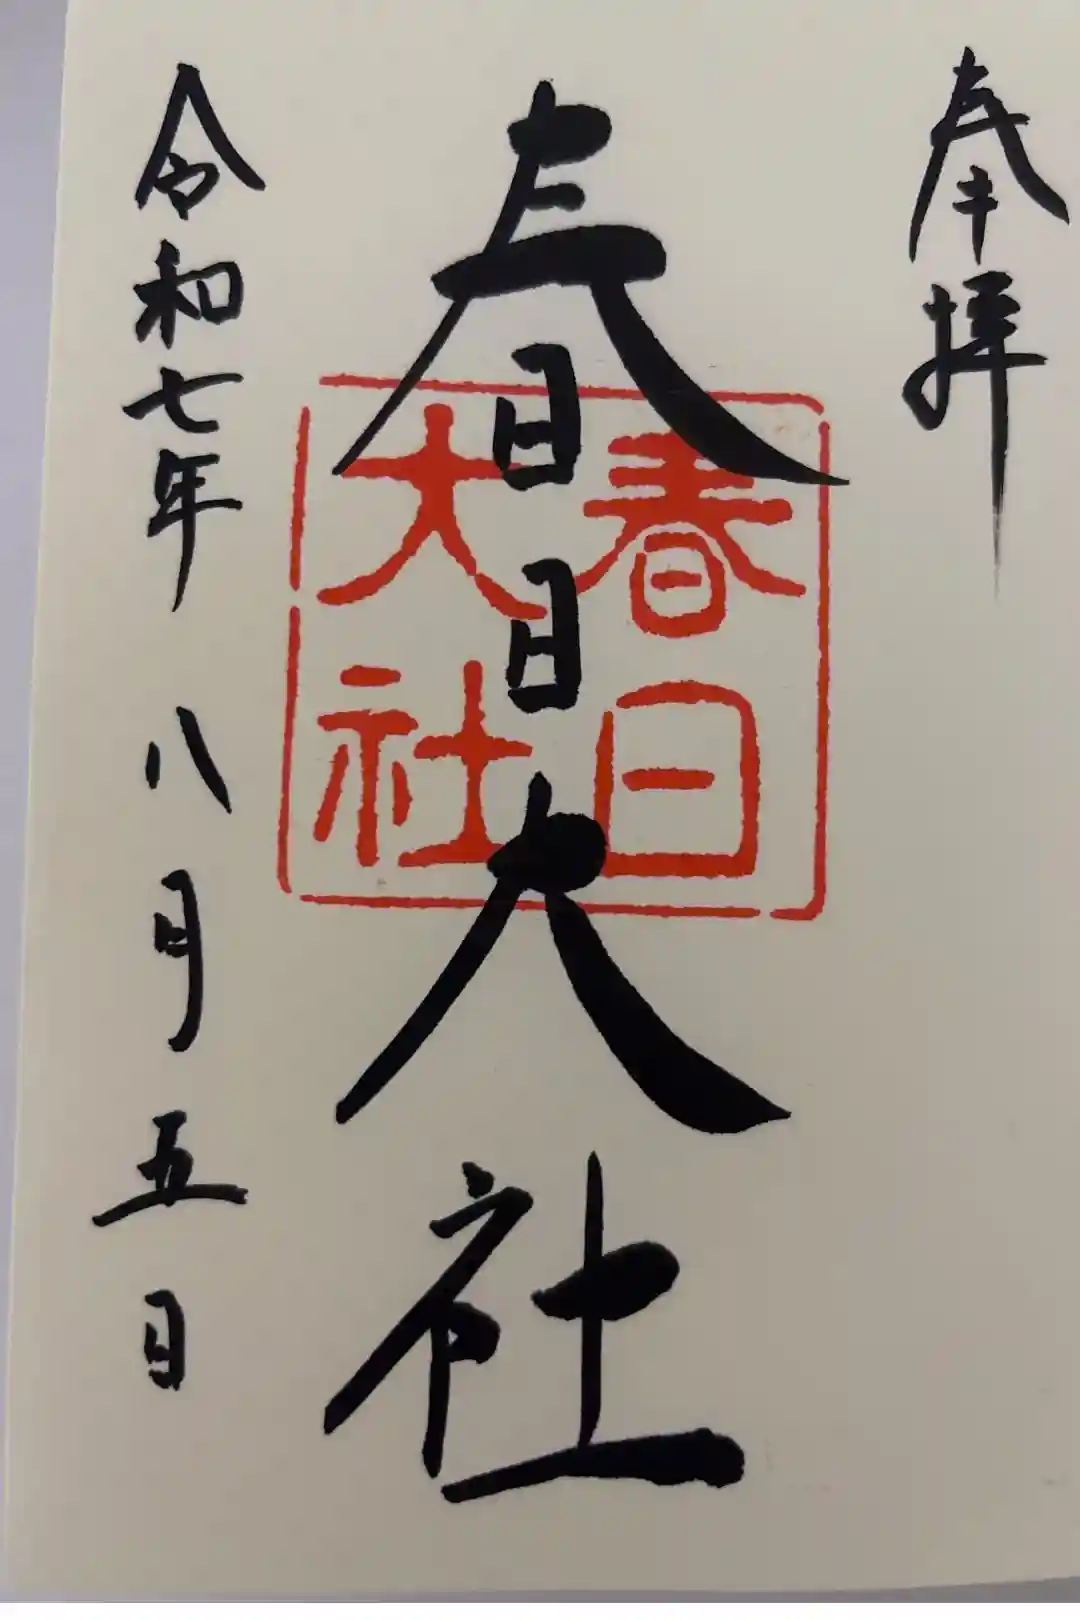 奉拝
春日大社
春日
大社
令和七年八月五日